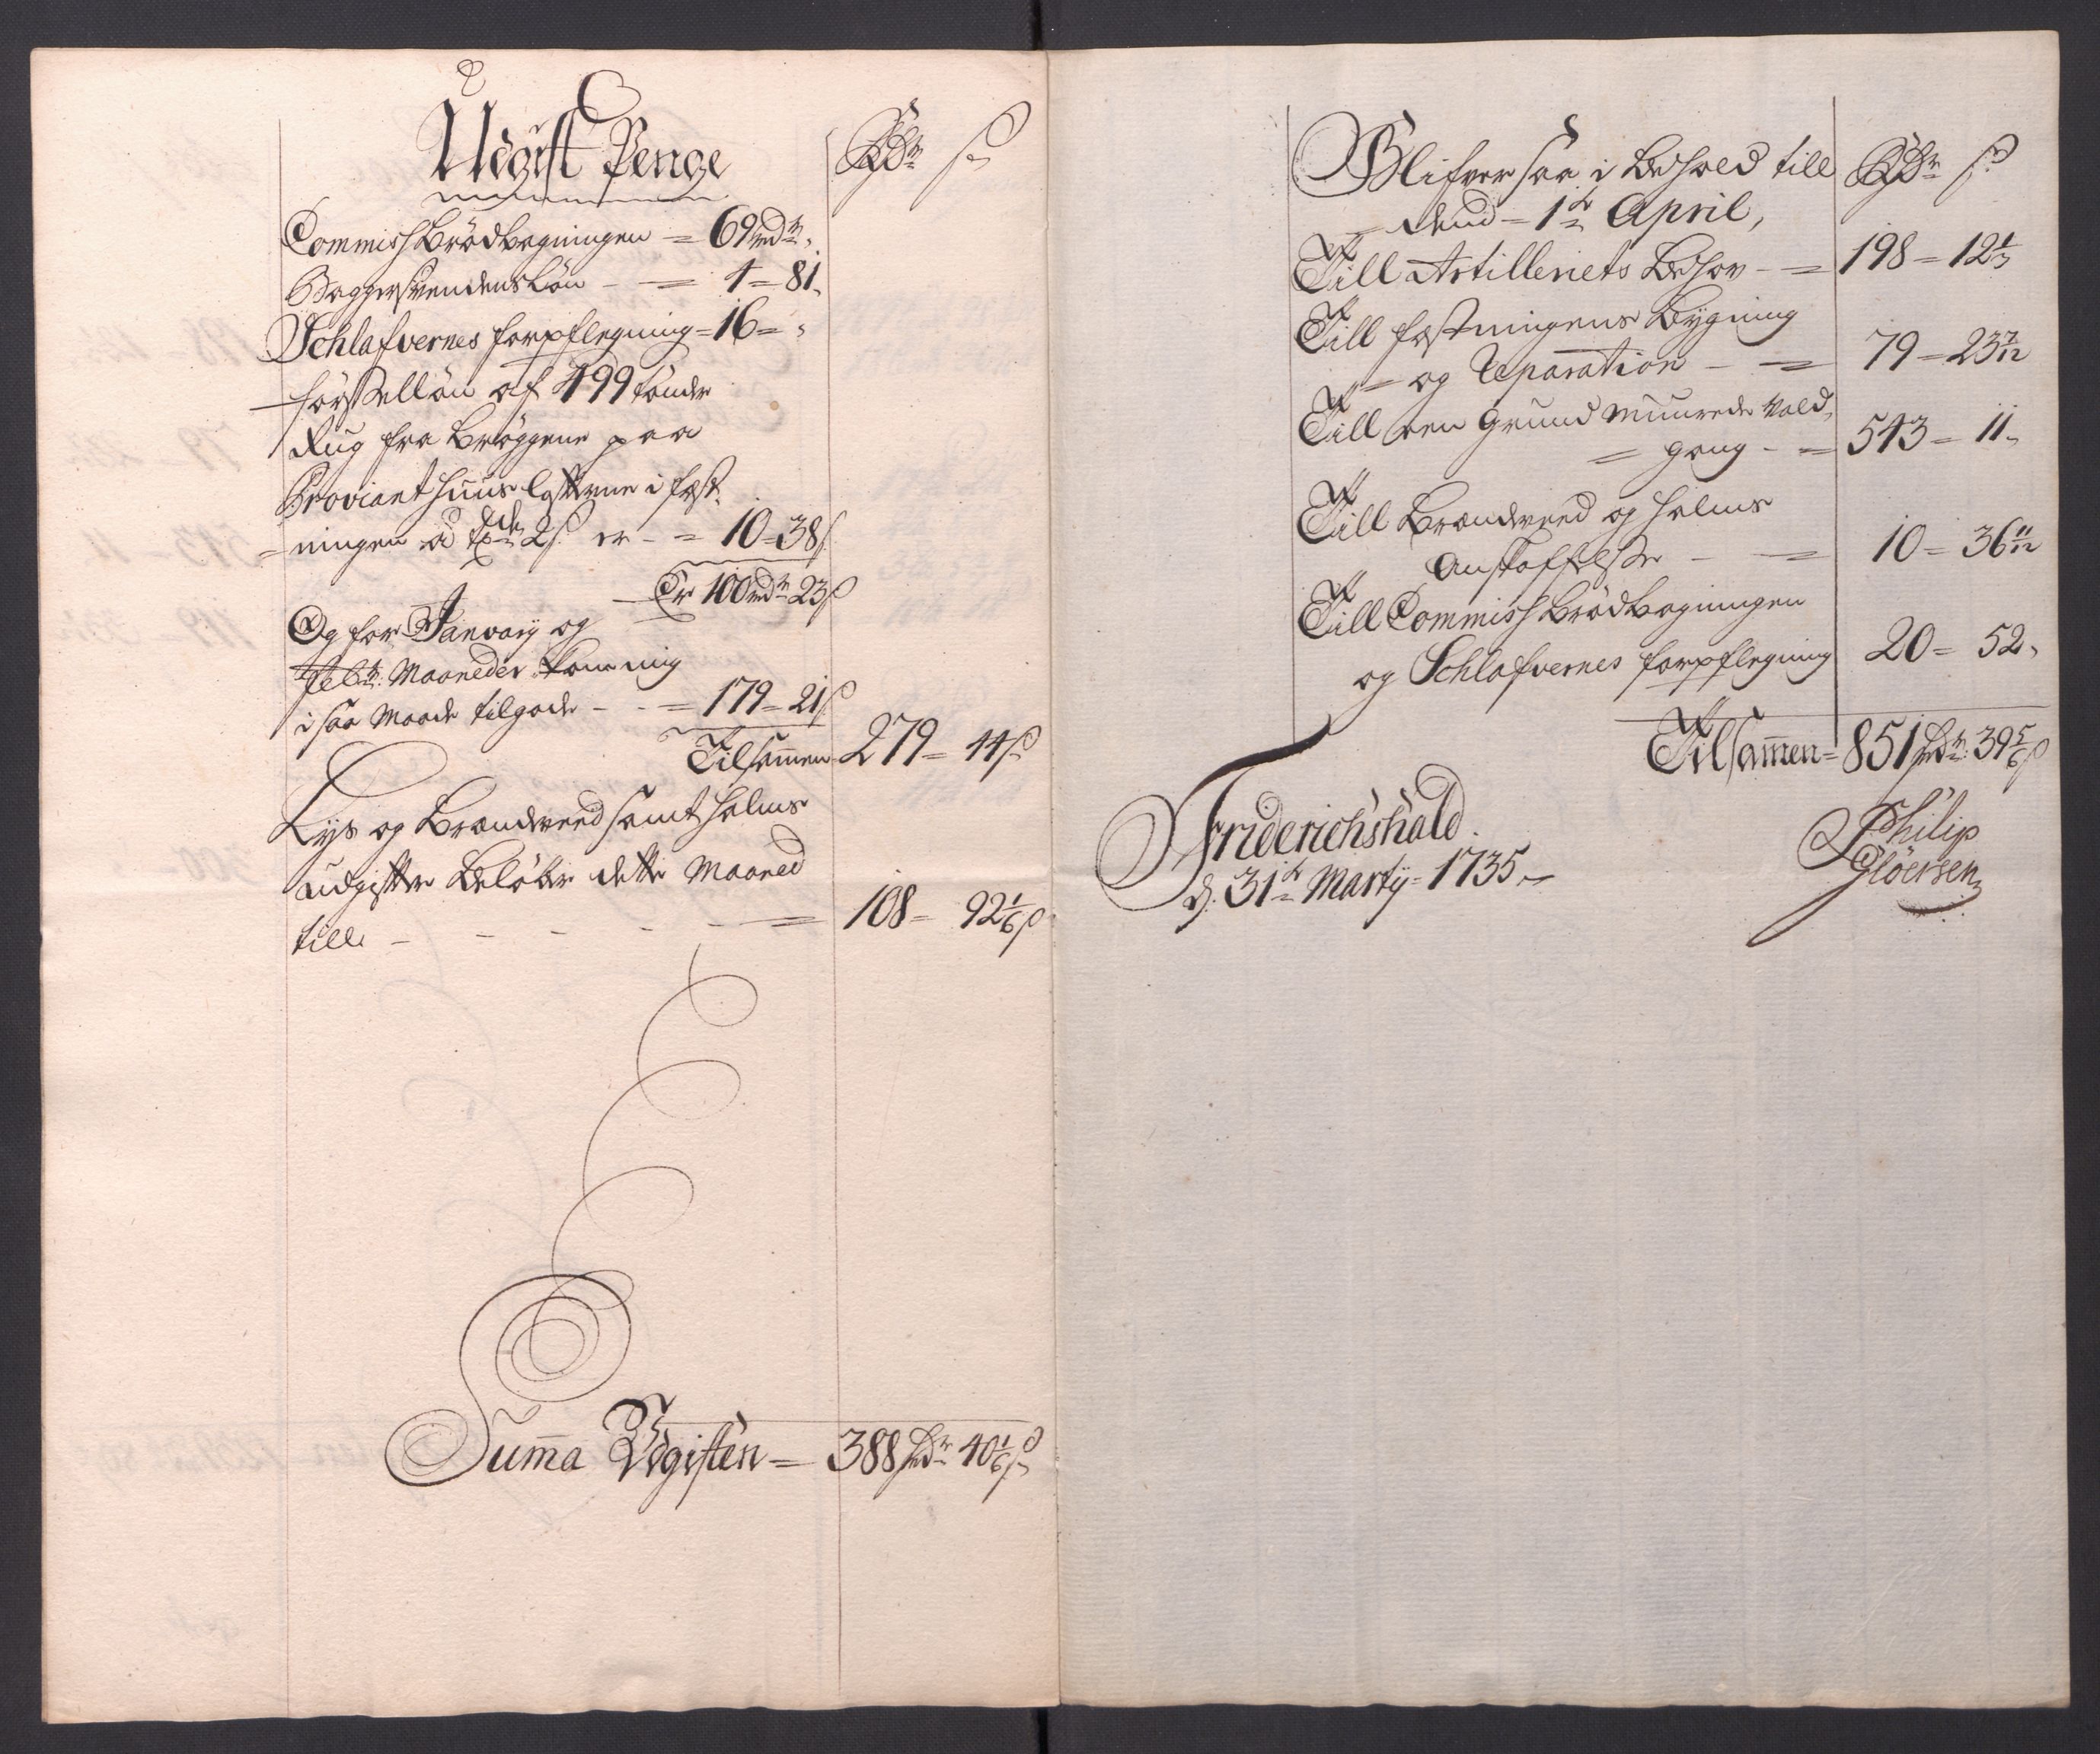 Udgift Penge Rdr ß
Commish Brødbagningen = 69 rdr
Baggersvendens Løn - = 4 = 81
Schlafvernes forpflegning = 16 =
Førselløn af 499 tønder
Rug fra Bryggene paa
Proviant Huus Lofterne i fæst-
ningen â tde 2 ß er = 10 = 38 ß
Er 100 rdr 23 ß
Og for Janvarij og
Febr: Maaneder kom mig
i saa Maade tilgode - = 179 = 21 ß
Tilsammen 279 = 44 ß
Lys og Brændeveed samt Halms
udgifter beløber dette Maaned
till - - - - = 108 = 92 1/6 ß
Summa Udgiften = 388 rdr 40 1/6 ß
Blifver saa i Behold till Rdr ß
dend 1te April,
Till Artilleriets Behov - = 198 = 12 1/3
Till fæstningens Bygning
og Reparation - = 79 = 23 7/12
Till den Grund Muurede Vold-
gang - = 543 = 11
Till Brændeveed og Halms
Anskaffelse - = 10 = 36 11/12
Till Commish Brødbagningen
og Schlafvernes forpflegning 20 = 52
Tilsammen = 851 rdr: 39 5/6 ß
Friderichshald
d. 31te Martij = 1735
Philip
Gløersen